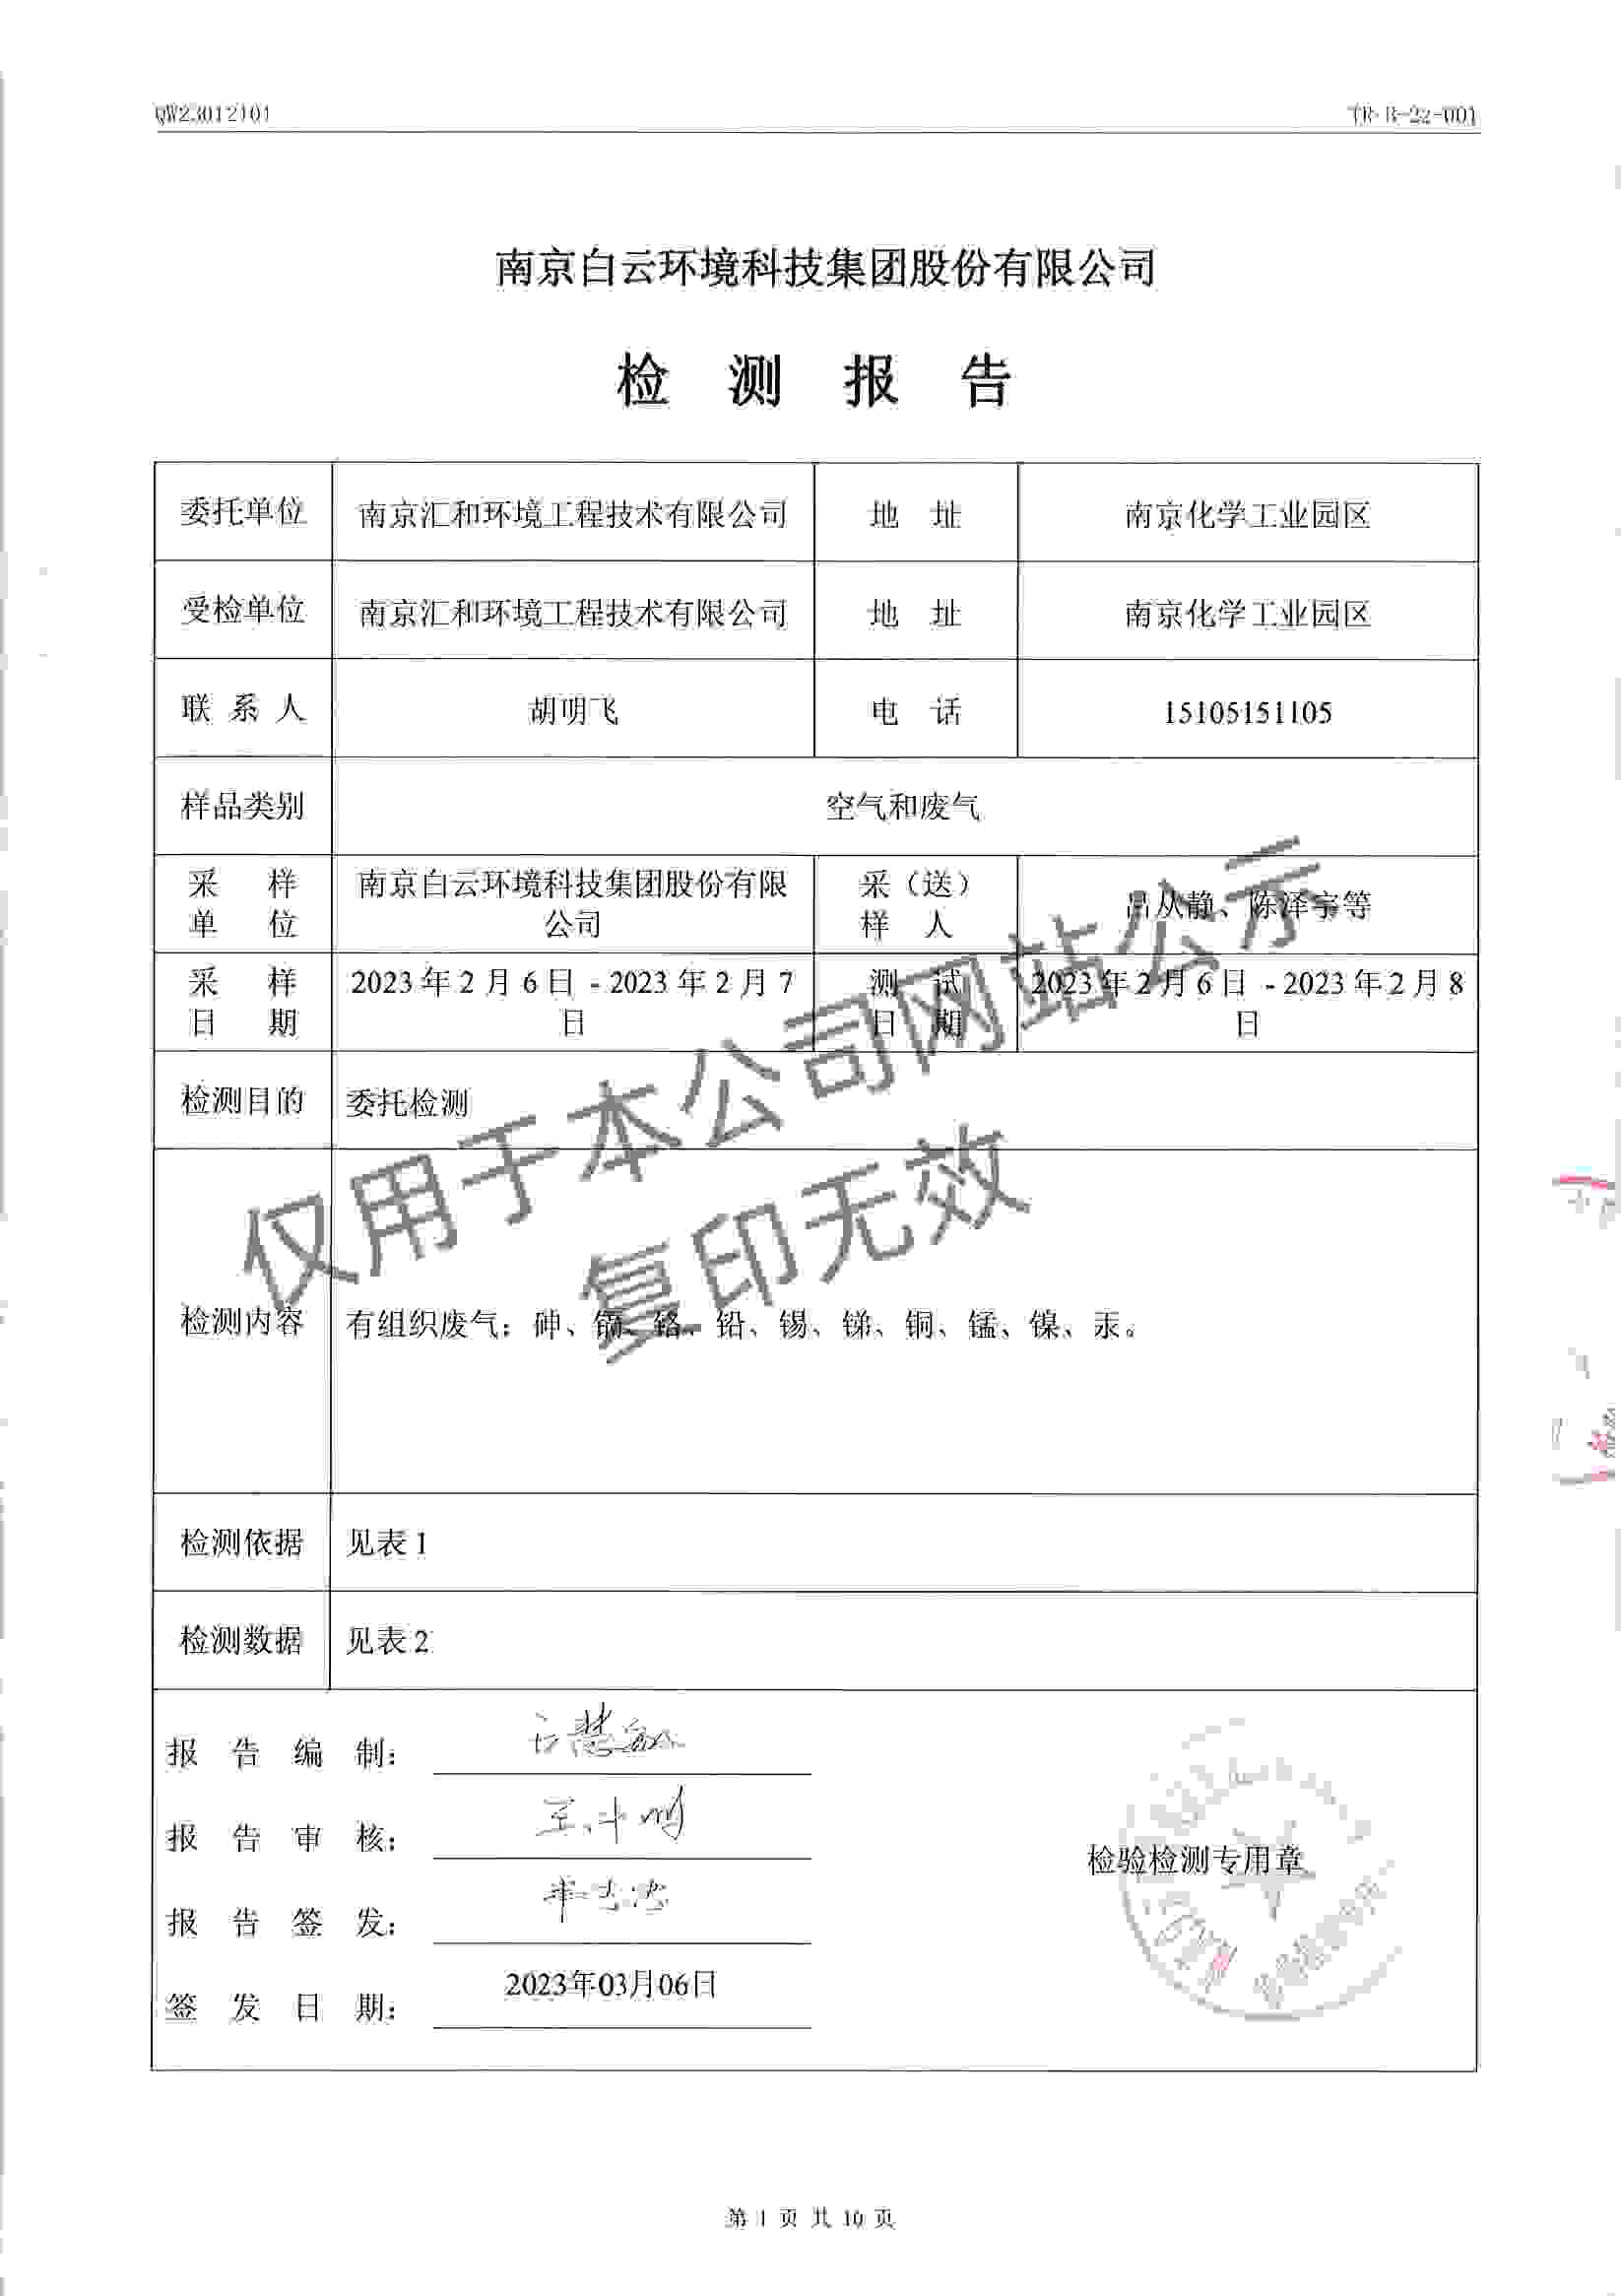 QW23012101
TR-R-22-001
南京白云环境科技集团股份有限公司
检 测 报 告
委托单位 南京汇和环境工程技术有限公司 地 址 南京化学工业园区
受检单位 南京汇和环境工程技术有限公司 地 址 南京化学工业园区
联 系 人 胡明飞 电 话 15105151105
样品类别 空气和废气
采 样 单 位 南京白云环境科技集团股份有限公司 采（送）样 人 吕从静、陈泽宇等
采 样 日 期 2023年2月6日 - 2023年2月7日 测 试 日 期 2023年2月6日 - 2023年2月8日
检测目的 委托检测
仅用于本公司网站公示
复印无效
检测内容 有组织废气：砷、镉、铬、铅、锡、锑、铜、锰、镍、汞。
检测依据 见表1
检测数据 见表2
报 告 编 制：
报 告 审 核：
检验检测专用章
报 告 签 发：
签 发 日 期： 2023年03月06日
第 1 页 共 10 页